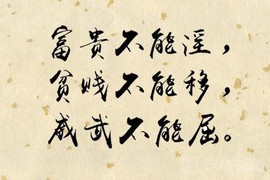 富貴不能淫，
貧賤不能移，
威武不能屈。